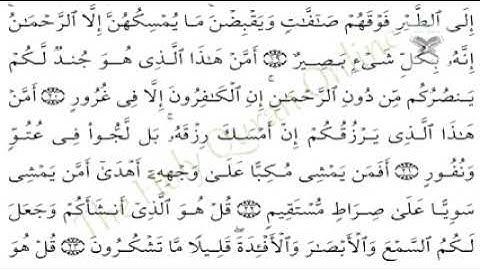 إِلَى ٱلطَّيْرِ فَوْقَهُمْ صَٰٓفَّٰتٍ وَيَقْبِضْنَ ۚ مَا يُمْسِكُهُنَّ إِلَّا ٱلرَّحْمَٰنُ ۚ
إِنَّهُۥ بِكُلِّ شَىْءٍۭ بَصِيرٌ ﴿١٩﴾ أَمَّنْ هَٰذَا ٱلَّذِى هُوَ جُندٌ لَّكُمْ
يَنصُرُكُم مِّن دُونِ ٱلرَّحْمَٰنِ ۚ إِنِ ٱلْكَٰفِرُونَ إِلَّا فِى غُرُورٍ ﴿٢٠﴾ أَمَّنْ
هَٰذَا ٱلَّذِى يَرْزُقُكُمْ إِنْ أَمْسَكَ رِزْقَهُۥ ۚ بَل لَّجُّوا۟ فِى عُتُوٍّ
وَنُفُورٍ ﴿٢١﴾ أَفَمَن يَمْشِى مُكِبًّا عَلَىٰ وَجْهِهِۦٓ أَهْدَىٰٓ أَمَّن يَمْشِى
سَوِيًّا عَلَىٰ صِرَٰطٍ مُّسْتَقِيمٍ ﴿٢٢﴾ قُلْ هُوَ ٱلَّذِىٓ أَنشَأَكُمْ وَجَعَلَ
لَكُمُ ٱلسَّمْعَ وَٱلْأَبْصَٰرَ وَٱلْأَفْـِٔدَةَ ۖ قَلِيلًا مَّا تَشْكُرُونَ ﴿٢٣﴾ قُلْ هُوَ
The Holy Quran Online